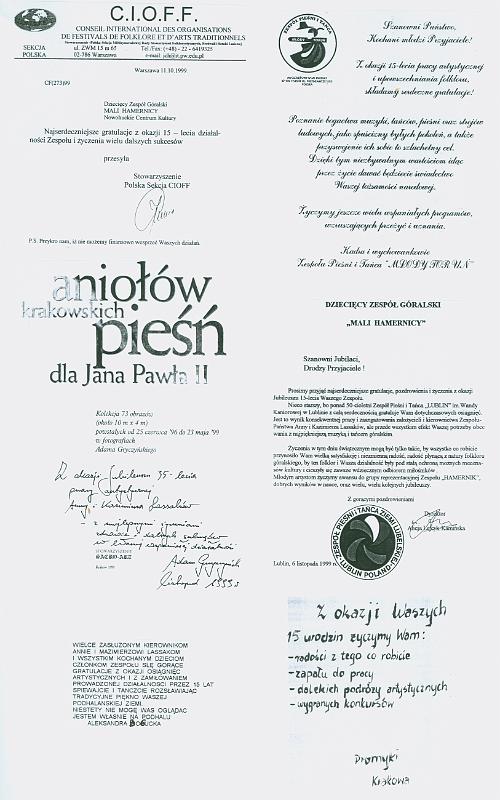 C.I.O.F.F.
CONSEIL INTERNATIONAL DES ORGANISATIONS
DE FESTIVALS DE FOLKLORE ET D'ARTS TRADITIONNELS
SEKCJA
POLSKA
ul. ZWM 15 m 65
02-786 Warszawa
Tel./Fax: (+48) - 22 - 6419325
Warszawa 11.10.1999.
CF(273)99
Dziecięcy Zespół Góralski
MALI HAMERNICY
Nowohuckie Centrum Kultury
Najserdeczniejsze gratulacje z okazji 15 – lecia działal-
ności Zespołu i życzenia wielu dalszych sukcesów
przesyła
Stowarzyszenie
Polska Sekcja CIOFF
P.S. Przykro nam, iż nie możemy finansowo wesprzeć Waszych działań.
aniołów
krakowskich
pieśń
dla Jana Pawła II
Kolekcja 73 obrazów
(około 10 m x 4 m)
powstałych od 25 czerwca '96 do 23 maja '99
w fotografiach
Adama Gryczyńskiego
Z okazji Jubileuszu 35-lecia
pracy artystycznej
Anny i Kazimierza Lassaków
- z najlepszymi życzeniami
zdrowia i dalszych sukcesów
STOWARZYSZENIE
SACRO-ART
Kraków 1999
Adam Gryczyński
Listopad 1999 r.
WIELCE ZASŁUŻONYM KIEROWNIKOM
ANNIE I MAZIMIERZOWI LASSAKOM
I WSZYSTKIM KOCHANYM DZIECIOM
CZŁONKOM ZESPOŁU ŚLĘ GORĄCE
GRATULACJE Z OKAZJI OSIĄGNIĘĆ
ARTYSTYCZNYCH I Z ZAMIŁOWANIEM
PROWADZONEJ DZIAŁALNOŚCI PRZEZ 15 LAT
ŚPIEWAJCIE I TAŃCZCIE ROZSŁAWIAJĄC
TRADYCYJNE PIĘKNO WASZEJ
PODHALAŃSKIEJ ZIEMI.
NIESTETY NIE MOGĘ WAS OGLĄDAĆ
JESTEM WŁAŚNIE NA PODHALU
ALEKSANDRA BOGUCKA
ZESPÓŁ PIEŚNI I TAŃCA
Szanowni Państwo,
Kochani młodzi Przyjaciele!
Z okazji 15-lecia pracy artystycznej
i upowszechniania folkloru,
składamy serdeczne gratulacje!
Poznanie bogactwa muzyki, tańców, pieśni oraz strojów
ludowych, jako spuścizny byłych pokoleń, a także
przyswojenie ich sobie to szlachetny cel.
Dzięki tym niezbywalnym wartościom idąc
przez życie dawać będziecie świadectwo
Waszej tożsamości narodowej.
Życzymy jeszcze wielu wspaniałych programów,
wzruszających przeżyć i uznania.
Kadra i wychowankowie
Zespołu Pieśni i Tańca "MŁODY TORUŃ"
DZIECIĘCY ZESPÓŁ GÓRALSKI
„MALI HAMERNICY”
Szanowni Jubilaci,
Drodzy Przyjaciele !
Prosimy przyjąć najserdeczniejsze gratulacje, pozdrowienia i życzenia z okazji
Jubileuszu 15-lecia Waszego Zespołu.
Nieco starszy, bo ponad 50-cioletni Zespół Pieśni i Tańca „LUBLIN” im. Wandy
Kaniorowej w Lublinie z całą serdecznością gratuluje Wam dotychczasowych osiągnięć.
Jest to wynik konsekwentnej pracy i zaangażowania założycieli i kierownictwa Zespołu-
Państwa Anny i Kazimierza Lassaków, ale przede wszystkim efekt Waszej potrzeby obco
wania z najpiękniejszą muzyką i tańcem góralskim.
Życzenia w tym dniu świątecznym mogą być tylko takie, by wszystko co robicie
przynosiło Wam wielką satysfakcję i niezmierną radość, radość płynącą z natury folkloru
góralskiego, by ten folklor i Wasza działalność były pod stałą ochroną możnych mecena-
sów kultury i cieszyły się zawsze wdzięcznym odbiorem miłośników.
Młodym artystom życzymy awansu do grupy reprezentacyjnej Zespołu „HAMERNIK”,
dobrych wyników w nauce, oraz wielu, wielu kolejnych jubileuszy.
Z gorącym pozdrowieniami
Dyrektor
Alicja Lejcyk-Kamińska
ZESPÓŁ PIEŚNI I TAŃCA ZIEMI LUBELSKIEJ
LUBLIN POLAND
Lublin, 6 listopada 1999 r.
Z okazji Waszych
15 urodzin życzymy Wam:
- radości z tego co robicie
- zapału do pracy
- dalekich podróży artystycznych
- wygranych konkursów
Promyki
Krakowa